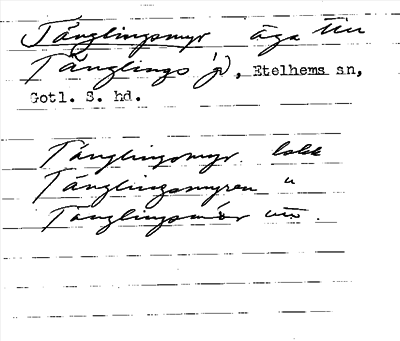 Tänglingsmyr äga till
Tänglings gd, Etelhems sn,
Gotl. S. hd.
Tänglingsmyr. lokk
Tänglingsmyren "
Tänglingsmör un.